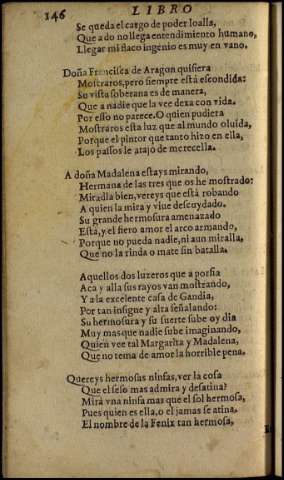 146 LIBRO
Se queda el cargo de poder loalla,
Que a do no llega entendimiento humano,
Llegar mi flaco ingenio es muy en vano.
Doña Francisca de Aragon quisiera
Mostraros, pero siempre está escondida:
Su vista soberana es de manera,
Que a nadie que la vee dexa con vida.
Por esso no parece. O quien pudiera
Mostraros esta luz que al mundo oluida,
Porque el pintor que tanto hizo en ella,
Los passos le atajo de merecella.
A doña Madalena estays mirando,
Hermana de las tres que os he mostrado:
Miradla bien, vereys que está robando
A quien la mira y viue descuydado.
Su grande hermosura amenazado
Está, y el fiero amor el arco armando,
Porque no pueda nadie, ni aun miralla,
Que no la rinda o mate sin batalla.
Aquellos dos luzeros que a porfia
Aca y alla sus rayos van mostrando,
Y a la excelente casa de Gandia,
Por tan insigne y alta señalando:
Su hermosura y su suerte sube oy dia
Muy mas que nadie sube imaginando,
Quien vee tal Margarita y Madalena,
Que no tema de amor la horrible pena.
Quereys hermosas ninfas, ver la cosa
Que el seso mas admira y desatina?
Mirá vna ninfa mas que el sol hermosa,
Pues quien es ella, o el jamas se atina.
El nombre de la Fenix tan hermosa,